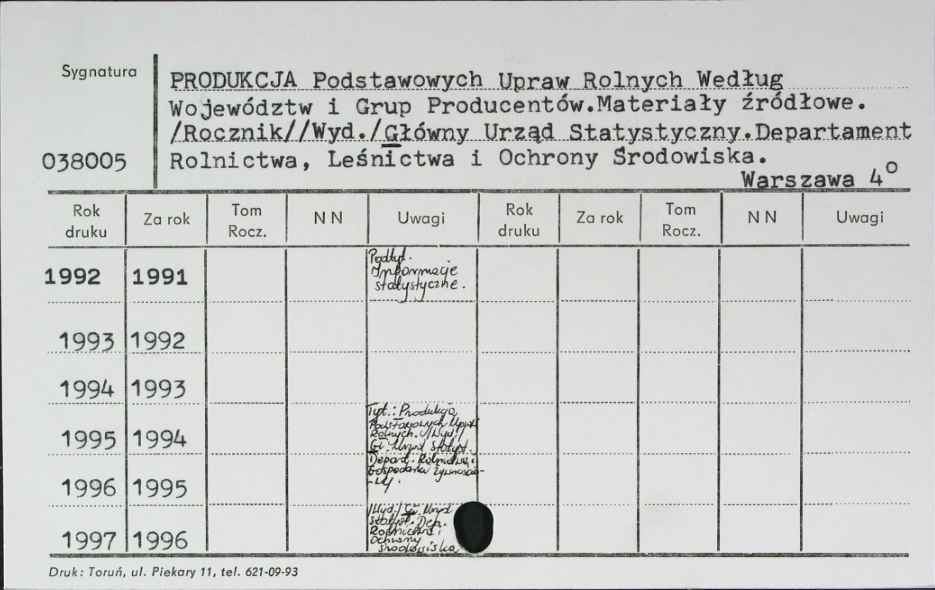 Sygnatura
PRODUKCJA Podstawowych Upraw Rolnych Według
Województw i Grup Producentów.Materiały źródłowe.
/Rocznik//Wyd./Główny Urząd Statystyczny.Departament
038005 Rolnictwa, Leśnictwa i Ochrony Środowiska.
Warszawa 4°
Rok druku Za rok Tom Rocz. N N Uwagi Rok druku Za rok Tom Rocz. N N Uwagi
1992 1991 Podtyt.
Informacje
statystyczne.
1993 1992
1994 1993
Tyt.: Produkcja
Podstawowych Upraw
1995 1994 Rolnych. /Wyd./
Gł. Urząd Statyst.
Depart. Rolnictwa i
Gospodarki Żywnościo-
1996 1995 -wej.
/Wyd./ Gł. Urząd
Statyst. Dep.
Rolnictwa i
1997 1996 Ochrony
Środowiska
Druk: Toruń, ul. Piekary 11, tel. 621-09-93